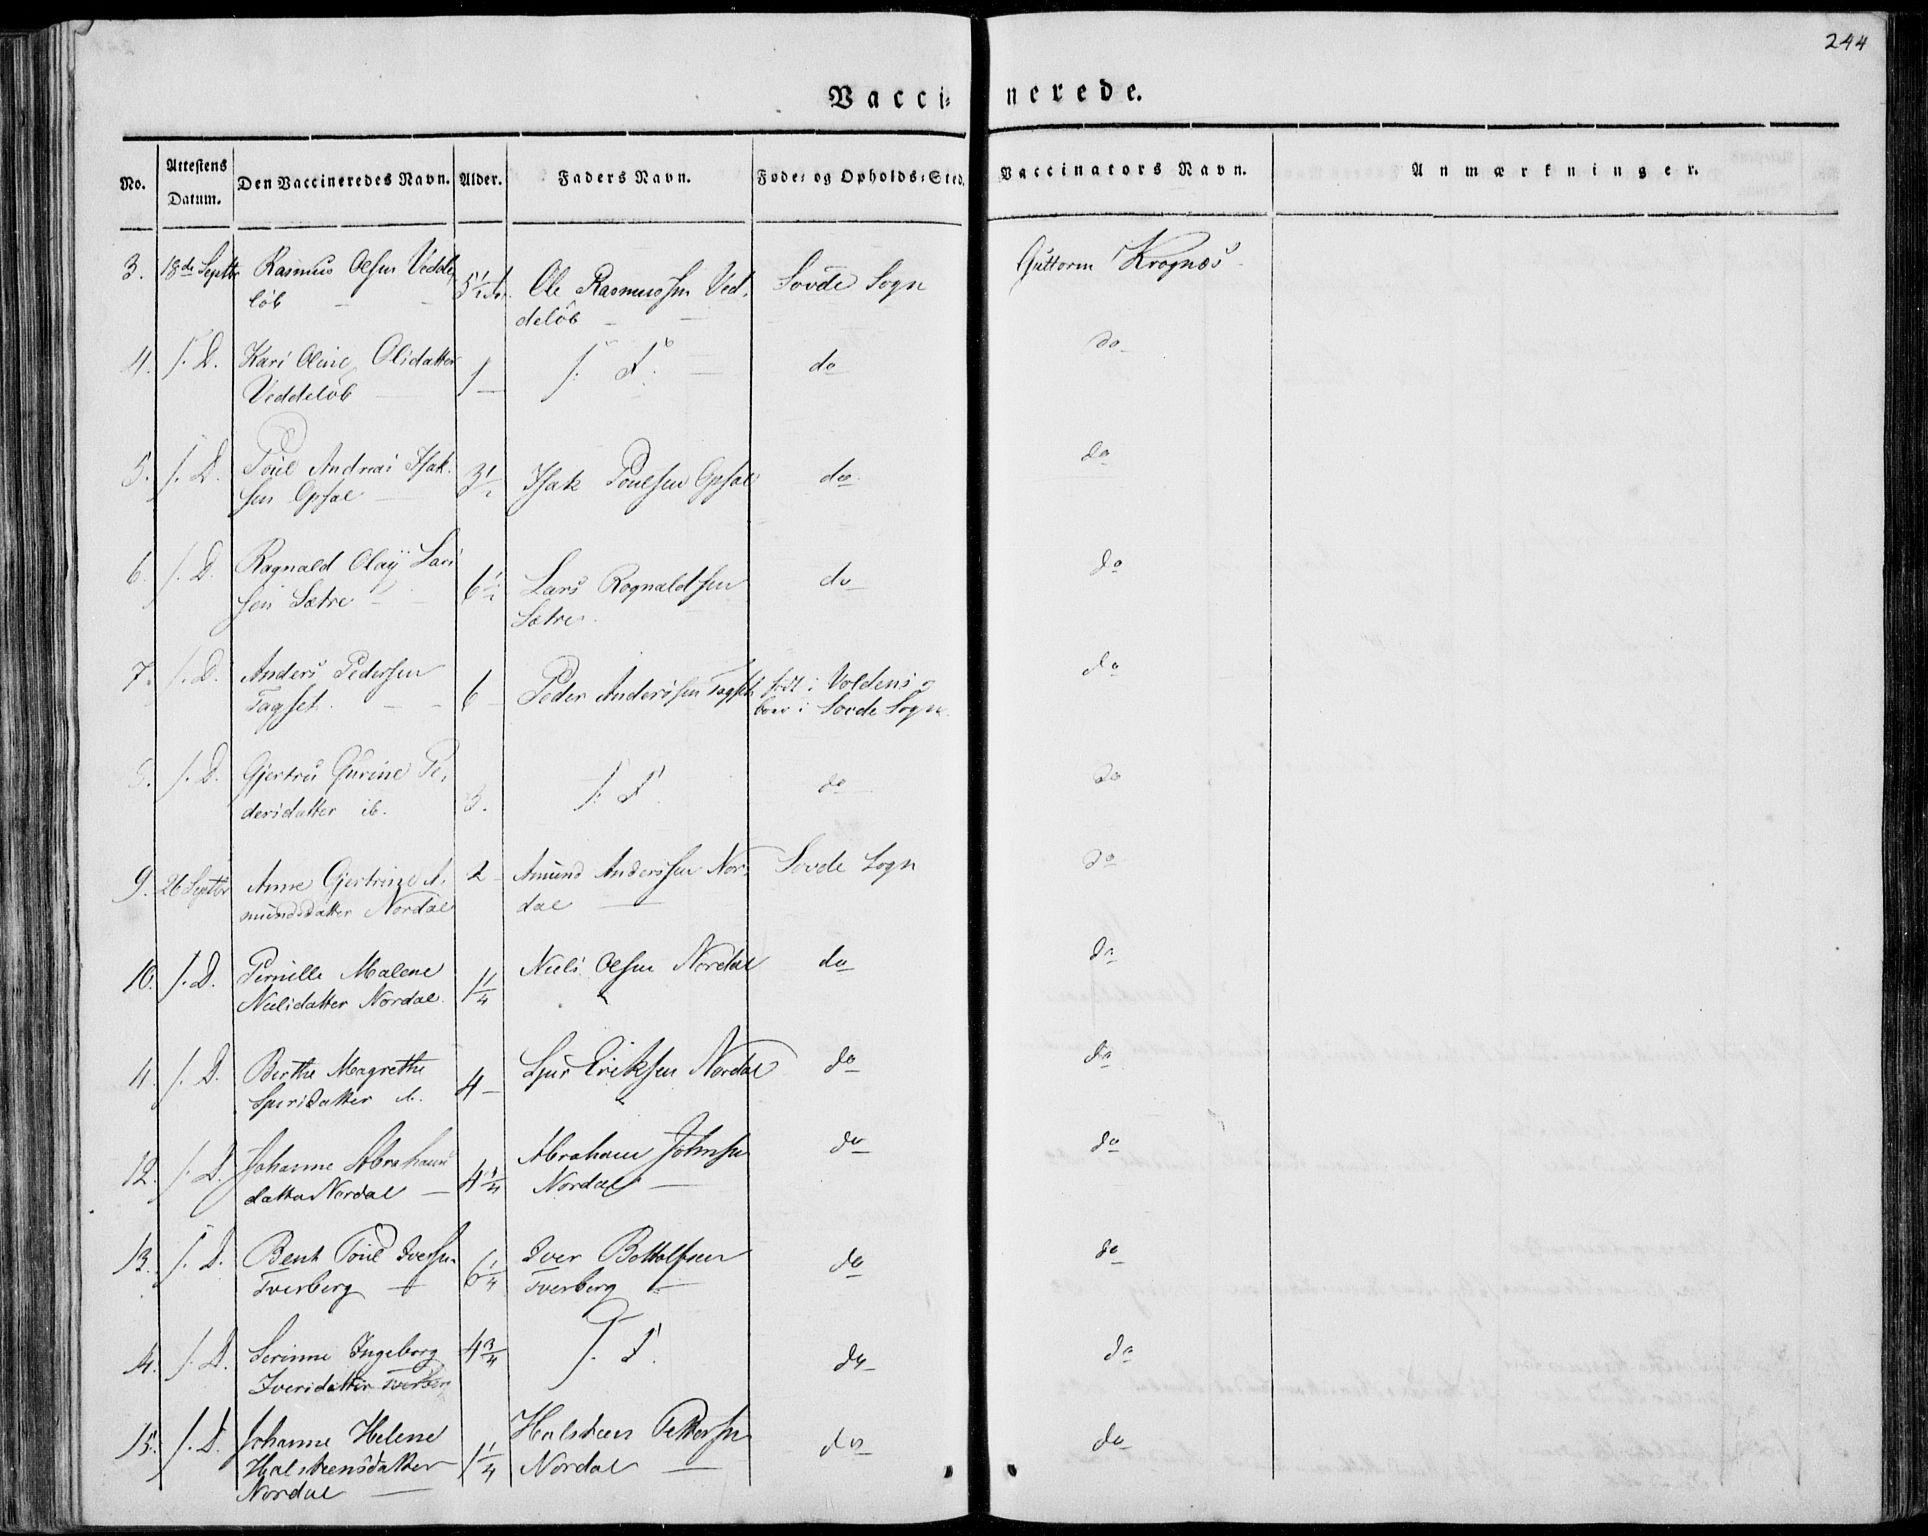 244
Vacci= nerede.
No. Attestens Datum. Den Vaccineredes Navn. Alder. Faders Navn. Føde= og Opholds=Sted. Vaccinators Navn. Anmærkninger.
3. 18de Septbr Rasmus Olsen Vedde, 5½ Ole Rasmussen Ved, Sovde Sogn Guttorm Krognæs
løb deløb
4. s. D. Kari Oline Olsdatter 1 s. F. do do
Veddeløb
5. s. D. Poul Andreas Isak, 3½ Isak Poulsen Opsal do do
sen Opsal
6. s. D. Ragnald Olaÿ Lars 6½ Lars Rognaldsen do do
sen Sætre Sætre
7. s. D. Anders Pedersen 6 Peder Andersen Fagset født i Voldens do
Fagset boer i Sovde Sogn
8. s. D. Gjertru Gurine Pe, 3. s. F. do do
dersdatter ib.
9. 26 Septbr Anne Gjertrine A, 2 Amund Anderssen Nor, Sovde Sogn do
mundsdatter Nordal dal
10. s. D. Pernille Malene 1¼ Niels Olsen Nordal do do
Nielsdatter Nordal
11. s. D. Berthe Magrethe 4 Sjur Eriksen Nordal do do
Sjursdatter ib.
12. s. D. Johanne Abrahams 4¼ Abraham Johnsen do do
datter Nordal Nordal
13. s. D. Bent Poul Iversen 6¼ Iver Bottolfsen do do
Tverberg Tverberg
14. s. D. Serinne Ingeborg 4¾ s. F. do do
Iversdatter Tverberg
15. s. D. Johanne Helene 1¼ Halsteen Pettersen do do
Halsteensdatter Nordal
Nordal